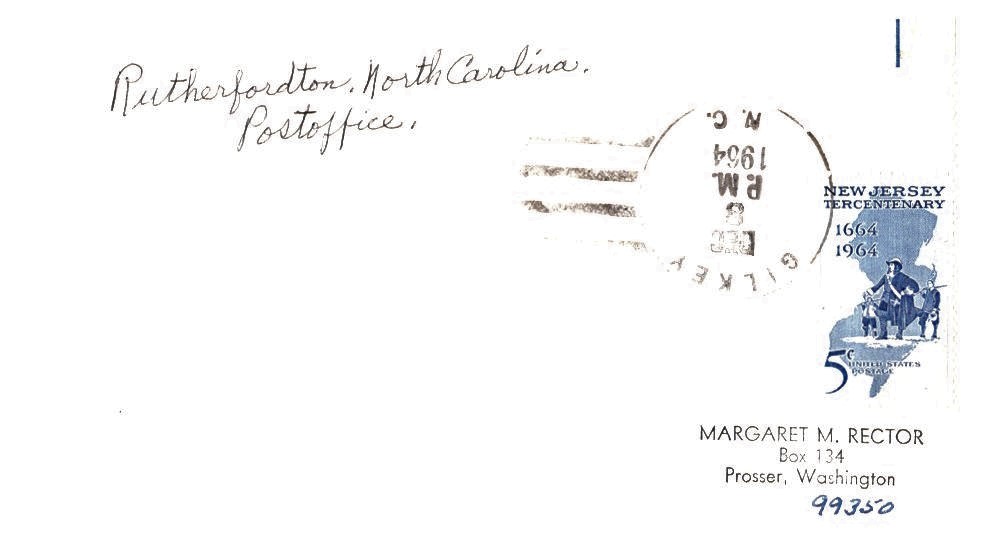 Rutherfordton, North Carolina.
Postoffice.
GILKEY
DEC
8
P.M.
1964
N. C.
NEW JERSEY
TERCENTENARY
1664
1964
5c
UNITED STATES
POSTAGE
MARGARET M. RECTOR
Box 134
Prosser, Washington
99350